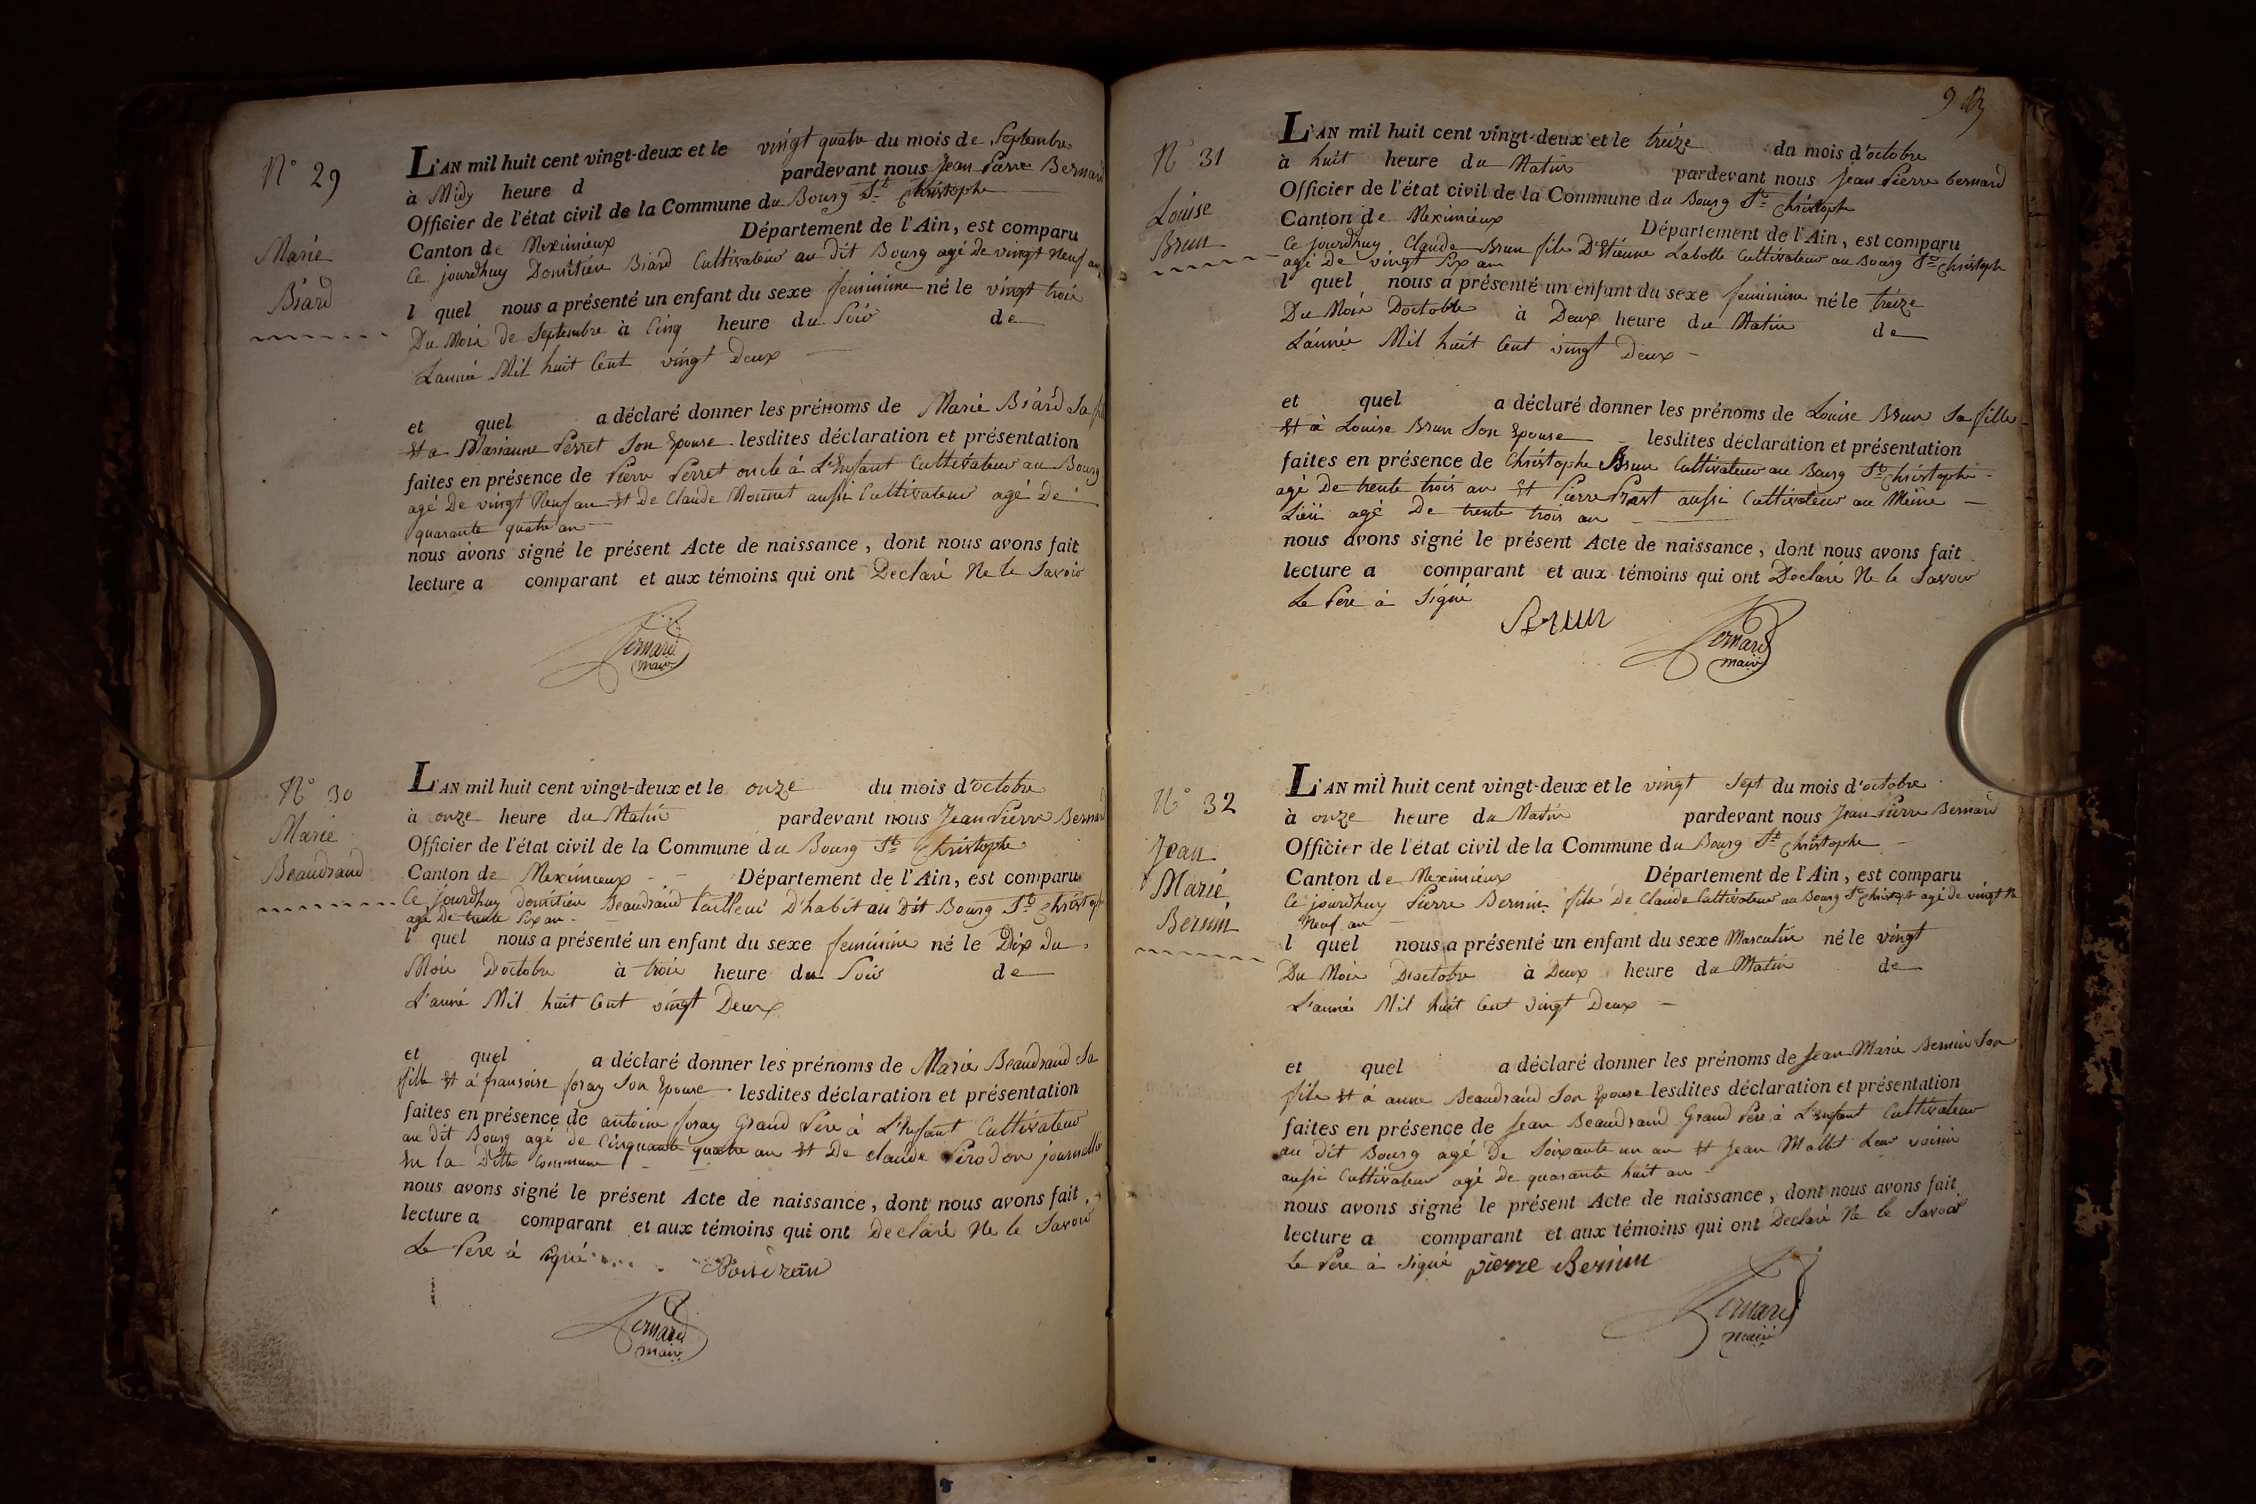 N° 29
Marie
Biard
L'AN mil huit cent vingt-deux et le vingt quatre du mois de Septembre
à Midy heure d pardevant nous Jean Pierre Bernard
Officier de l'état civil de la Commune du Bourg St Christophe
Canton de Meximieux Département de l'Ain, est comparu
Ce jourdhuy Domitien Biard Cultivateur au dit Bourg agé De vingt Neuf an
l quel nous a présenté un enfant du sexe feminine né le vingt trois
Du Mois de Septembre à Cinq heure du Soir de
Lannée Mil huit Cent vingt Deux
et quel a déclaré donner les prénoms de Marie Biard Sa
Et a Marianne Perret Son Epouse lesdites déclaration et présentation
faites en présence de Pierre Perret oncle à L'Enfant Cultivateur au Bourg
agé De vingt Neuf an Et De Claude Monnet aussi Cultivateur agé De
quarante quatre an
nous avons signé le présent Acte de naissance, dont nous avons fait
lecture a comparant et aux témoins qui ont Declaré Ne le Savoir
Bernard
maire
N° 30
Marie
Beaudrand
L'AN mil huit cent vingt-deux et le onze du mois d'octobre
à onze heure du Matin pardevant nous Jean Pierre Bernard
Officier de l'état civil de la Commune du Bourg St Christophe
Canton de Meximieux Département de l'Ain, est comparu
Ce jourdhuy domitien Beaudrand tailleur D'habit au Dit Bourg St Christophe
agé De trente Six an
l quel nous a présenté un enfant du sexe feminine né le Dix Du
Mois D'octobre à trois heure du Soir de
L'anné Mil huit Cent vingt Deux
et quel a déclaré donner les prénoms de Marie Beaudrand Sa
fille Et à fransoise foray Son Epouse lesdites déclaration et présentation
faites en présence de antoine foray Grand Pere à L'Enfant Cultivateur
au dit Bourg agé de Cinquante quatre an Et De claude Perodon journallier
En la Ditte Commune
nous avons signé le présent Acte de naissance, dont nous avons fait
lecture a comparant et aux témoins qui ont Declaré Ne le Savoir
Le Pere à signé
Bernard
maire
N° 31
Louise
Brun
L'AN mil huit cent vingt-deux et le treize du mois d'octobre
à huit heure du Matin pardevant nous Jean Pierre Bernard
Officier de l'état civil de la Commune du Bourg St Christophe
Canton de Meximieux Département de l'Ain, est comparu
Ce jourdhuy Claude Brun fils D'Etienne Labotte Cultivateur au Bourg St Christophe
agé De vingt Six an
l quel nous a présenté un enfant du sexe feminine né le treize
Du Mois Doctobre à Deux heure du Matin de
L'année Mil huit Cent vingt Deux
et quel a déclaré donner les prénoms de Louise Brun Sa fille
Et à Louise Brun Son Epouse lesdites déclaration et présentation
faites en présence de Christophe Brun Cultivateur au Bourg St Christophe
agé De trente trois an Et Pierre Prast aussi Cultivateur au Même
Lieu agé De trente trois an
nous avons signé le présent Acte de naissance, dont nous avons fait
lecture a comparant et aux témoins qui ont Declaré Ne le Savoir
Le Pere à Signé
Brun
Bernard
maire
N° 32
Jean
Marie
Bernin
L'AN mil huit cent vingt-deux et le vingt Sept du mois d'octobre
à onze heure du Matin pardevant nous Jean Pierre Bernard
Officier de l'état civil de la Commune du Bourg St Christophe
Canton de Meximieux Département de l'Ain, est comparu
Ce jourdhuy Pierre Bernin fils De Claude Cultivateur au Bourg St Christophe agé de vingt
Neuf an
l quel nous a présenté un enfant du sexe Masculin né le vingt
Du Mois D'octobre à Deux heure du Matin de
L'année Mil huit Cent vingt Deux
et quel a déclaré donner les prénoms de Jean Marie Bernin Son
fils Et à anne Beaudrand Son Epouse lesdites déclaration et présentation
faites en présence de Jean Beaudrand Grand Pere à L'Enfant Cultivateur
au dit Bourg agé De Soixante un an Et Jean Mollet Leur voisin
aussi Cultivateur agé De quarante huit an
nous avons signé le présent Acte de naissance, dont nous avons fait
lecture a comparant et aux témoins qui ont Declaré Ne le Savoir
Le Pere à Signé pierre Bernin
Bernard
maire